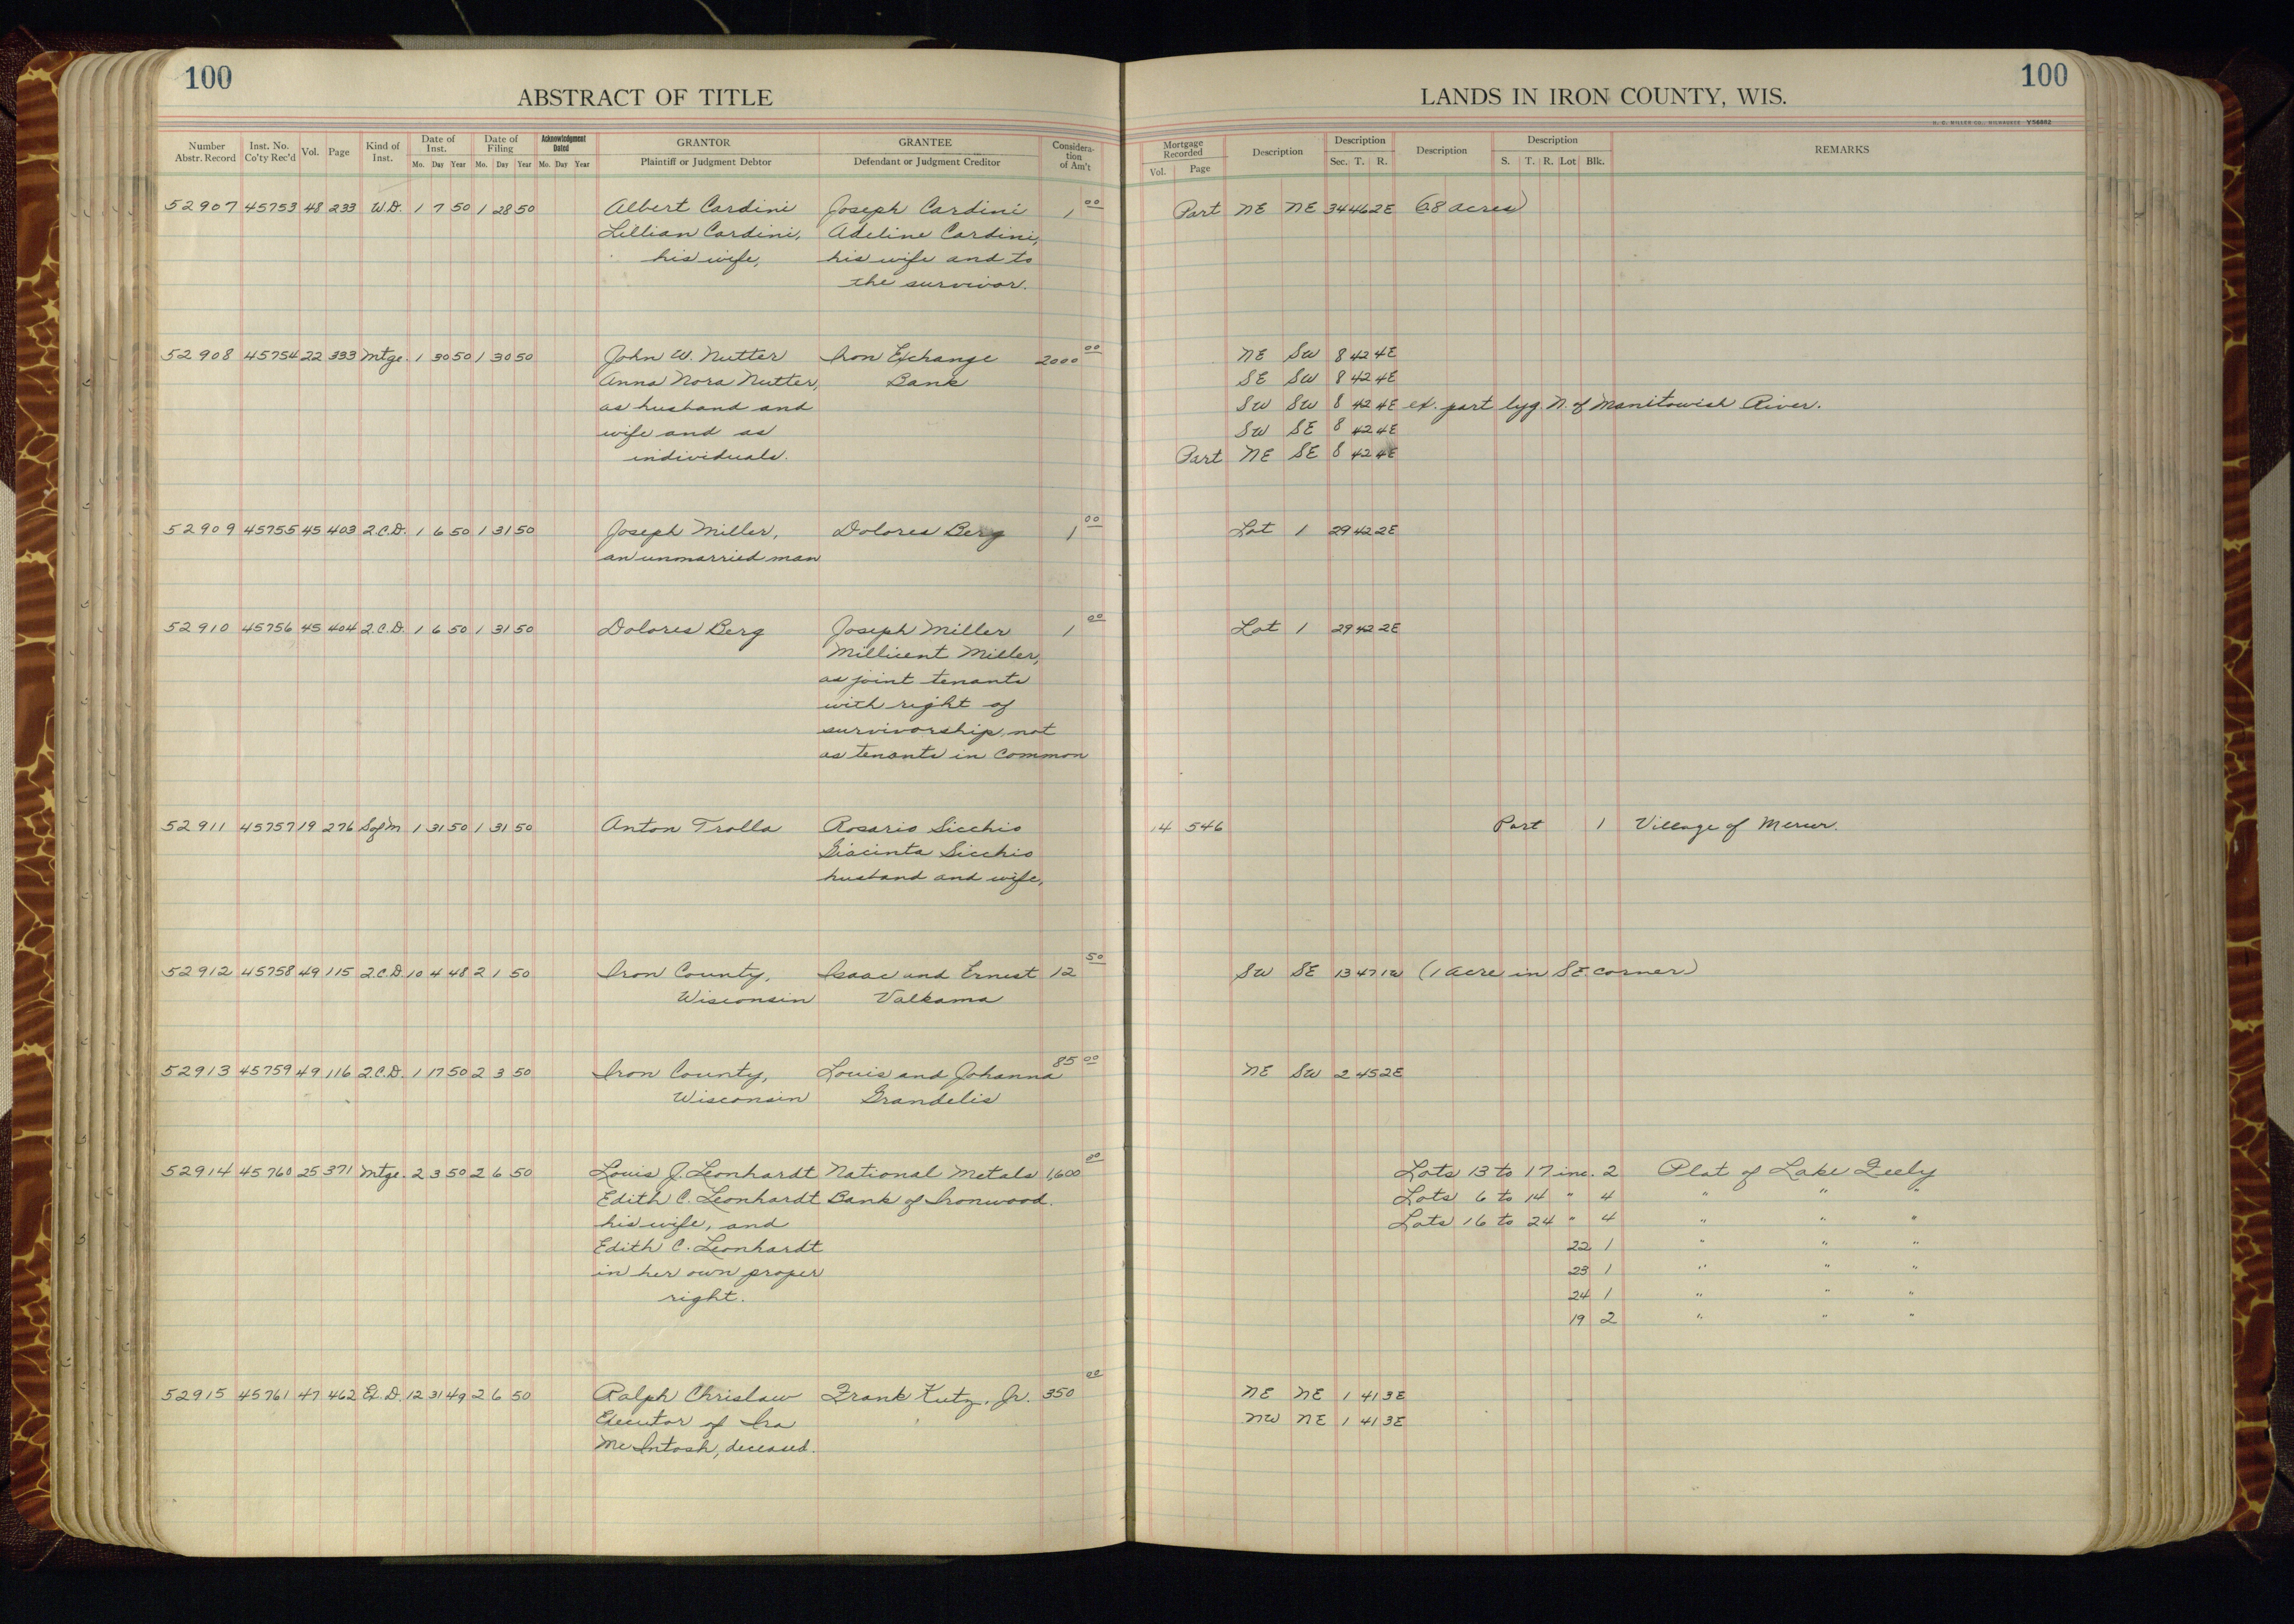 100
ABSTRACT OF TITLE
LANDS IN IRON COUNTY, WIS.
100
H. C. MILLER CO., MILWAUKEE V56882
Number Abstr. Record | Inst. No. Co'ty Rec'd | Vol. | Page | Kind of Inst. | Date of Inst. Mo. Day Year | Date of Filing Mo. Day Year | Acknowledgment Dated Mo. Day Year | GRANTOR Plaintiff or Judgment Debtor | GRANTEE Defendant or Judgment Creditor | Consideration of Am't | Mortgage Recorded Vol. Page | Description | Description Sec. T. R. | Description | Description S. T. R. Lot Blk. | REMARKS
52907 45753 48 233 W.D. 1 7 50 1 28 50 Albert Cardini Joseph Cardini 1 00 Part NE NE 34 46 2E (.8 acres)
Lillian Cardini, Adeline Cardini,
his wife, his wife and to
the survivor.
52908 45754 22 333 Mtge. 1 30 50 1 30 50 John W. Nutter Iron Exchange 2000 00 NE SW 8 42 4E
Anna Nora Nutter, Bank SE SW 8 42 4E
as husband and SW SW 8 42 4E ex. part lyg. N. of Manitowish River.
wife and as SW SE 8 42 4E
individuals. Part NE SE 8 42 4E
52909 45755 45 403 2.C.D. 1 6 50 1 31 50 Joseph Miller, Dolores Berg 1 00 Lot 1 29 42 2E
an unmarried man
52910 45756 45 404 2.C.D. 1 6 50 1 31 50 Dolores Berg Joseph Miller 1 00 Lot 1 29 42 2E
Millicent Miller,
as joint tenants
with right of
survivorship, not
as tenants in common
52911 45757 19 276 S of M 1 31 50 1 31 50 Anton Trolla Rosario Sicchio 14 546 Part 1 Village of Mercer.
Giacinta Sicchio
husband and wife,
52912 45758 49 115 2.C.D. 10 4 48 2 1 50 Iron County, Isaac and Ernest 12 50 SW SE 13 47 1W (1 acre in SE. corner)
Wisconsin Valkama
52913 45759 49 116 2.C.D. 1 17 50 2 3 50 Iron County, Louis and Johanna 85 00 NE SW 2 45 2E
Wisconsin Grandelis
52914 45760 25 371 Mtge. 2 3 50 2 6 50 Louis J. Leonhardt National Metals 1,600 00 Lots 13 to 17 inc. 2 Plat of Lake Feely
Edith C. Leonhardt Bank of Ironwood. Lots 6 to 14 " 4 " " "
his wife, and Lots 16 to 24 " 4 " " "
Edith C. Leonhardt 22 1 " " "
in her own proper 23 1 " " "
right. 24 1 " " "
19 2 " " "
52915 45761 47 462 Ex. D. 12 31 49 2 6 50 Ralph Chrislaw Frank Kutz, Jr. 350 00 NE NE 1 41 3E
Executor of Ira NW NE 1 41 3E
McIntosh, deceased.